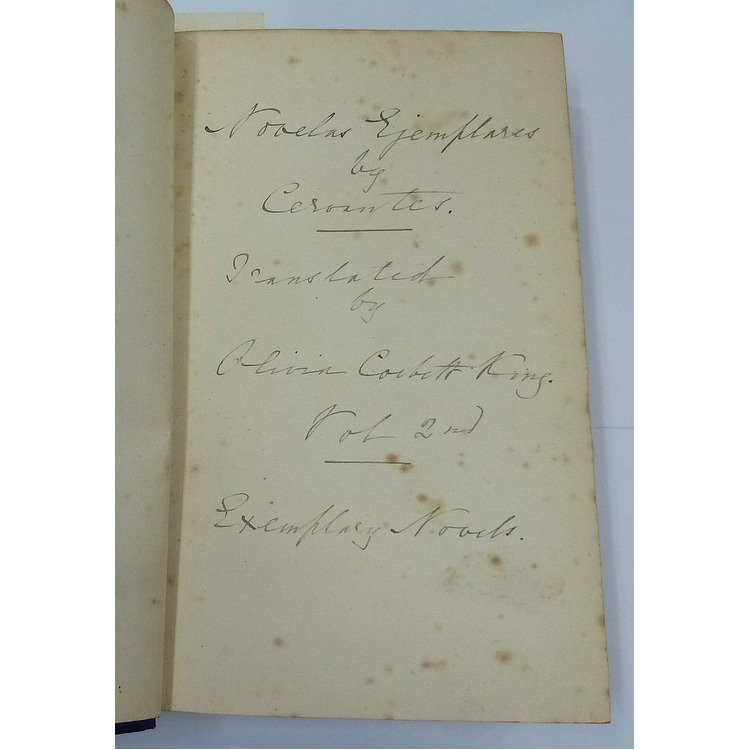 Novelas Ejemplares
by
Cervantes.
Translated
by
Olivia Corbett King.
Vol 2nd
Exemplary Novels.